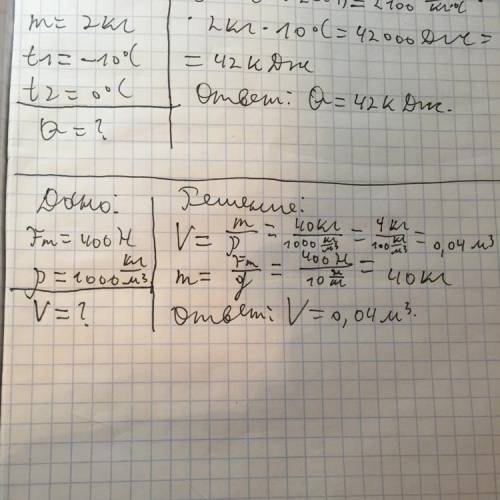 m = 2кг
t1 = -10°C
t2 = 0°C
Q = ?
2100
· 2кг · 10°C = 42000 Дж =
= 42 кДж
Ответ: Q = 42 кДж.
Дано:
Fт = 400 Н
ρ = 1000 кг/м³
V = ?
Решение:
V = m/ρ = 40кг/1000 кг/м³ = 4кг/100 кг/м³ = 0,04 м³
m = Fт/g = 400 Н/10 Н/кг = 40 кг
Ответ: V = 0,04 м³.